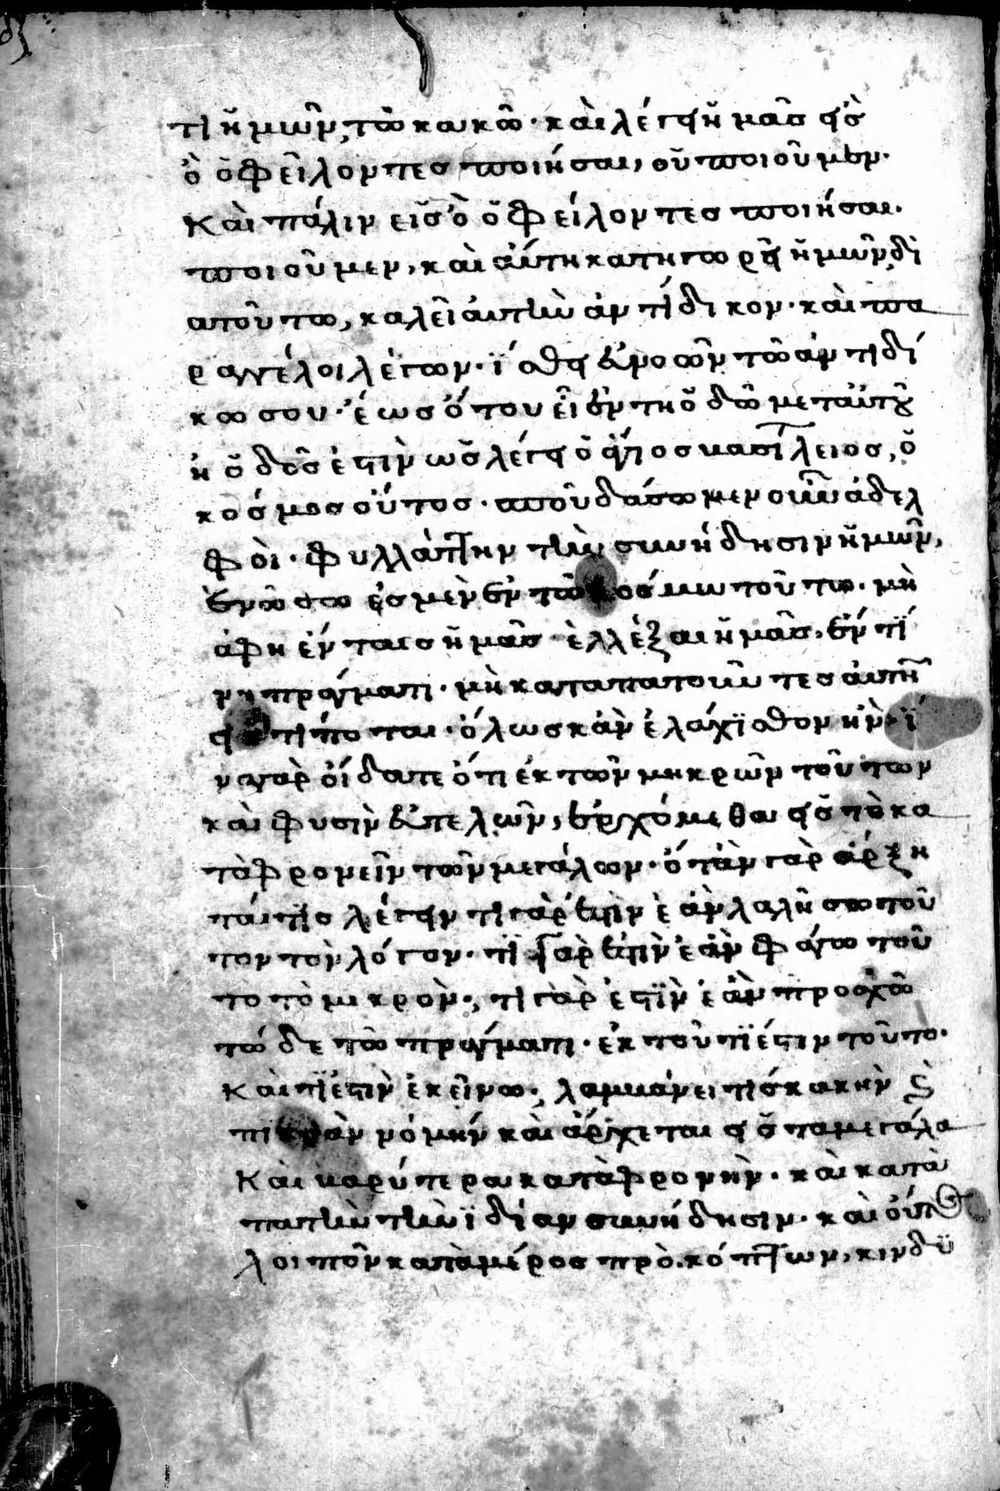 τι ἡμῶν, τῶ κακῶ· καὶ λέγει ἡμᾶσ εἰσ
ὃ ὀφεῖλοντεσ ποιῆσαι, οὐ ποιοῦμεν·
Καὶ πάλιν εἰσ ὃ ὀφείλοντεσ ποιήσαι·
ποιοῦμεν, καὶ ἀύτη κατηγωρεῖ ἡμῶν, δι
ατοῦτω, καλεῖ ἀυτὴν ἀντίδικον· καὶ πα
ραγγέλοι λέγων· ἴσθι ἐυνοῶν τῶ ἀντιδί
κω σου· ἕωσ ὅτου εἶ ἐν τῆ ὁδῶ μετ ἀυτοῦ
ἡ ὁδόσ ἐστὶν ὡσ λέγει ὁ ἅγιοσ βασίλειοσ, ὁ
κόσμοσ οὗτοσ· σπουδάσωμεν οὖν ἀδελ
φοὶ· φυλλάττην τὴν συνήδησιν ἡμῶν,
ἐνῶσω ἐσμὲν ἐν τῶ κόσμω τοῦτω· μὴ
ἀφηέντασ ἡμᾶσ ἐλλέξαι ἡμᾶσ, ἔν τι
νη πράγματι· μὴ καταπατοῦντεσ ἀυτὴν
τίποται· ὅλωσ κἀν ἐλάχϊσθον ἠν· ἵ
να γὰρ οἴδατε ὅτι ἐκ τῶν μηκρῶν τοῦτων
καὶ φυσὶν ἐυτελῶν, ἐρχόμεθα εἰσ τὸ κα
ταφρονεῖν τῶν μεγάλων· ὅταν γὰρ ἄρξη
ταί τισ λέγειν τι γὰρ ἐστὶν ἐὰν λαλήσω τοῦ
τον τὸν λόγον· τί γὰρ ἐστὶν ἐὰν φάγω τοῦ
το τὸ μικρὸν·, τι γὰρ ἐστϊν ἐὰν προσχῶ
τώδε τῶ πράγματι· ἐκ τοῦ τί ἐστιν τοῦτο·
Καὶ τί ἐστὶν ἐκεῖνω·, λαμβάνει τισ κακὴν καὶ
πικρὰν νόμην καὶ ἄρχεται εἰσ τα μεγάλα
Καὶ βαρύτερα καταφρονὴν· καὶ κατα
πατὴν τὴν ϊδίαν συνήδησιν· καὶ οὕτωσ
λοιπὸν κατα μέροσ πρὸκόπτων, κινδυ